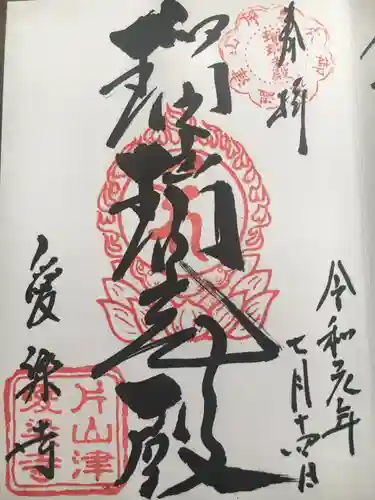 奉拝
令和元年
七月十四日
瑠璃光殿
愛染寺
片山津
愛染寺